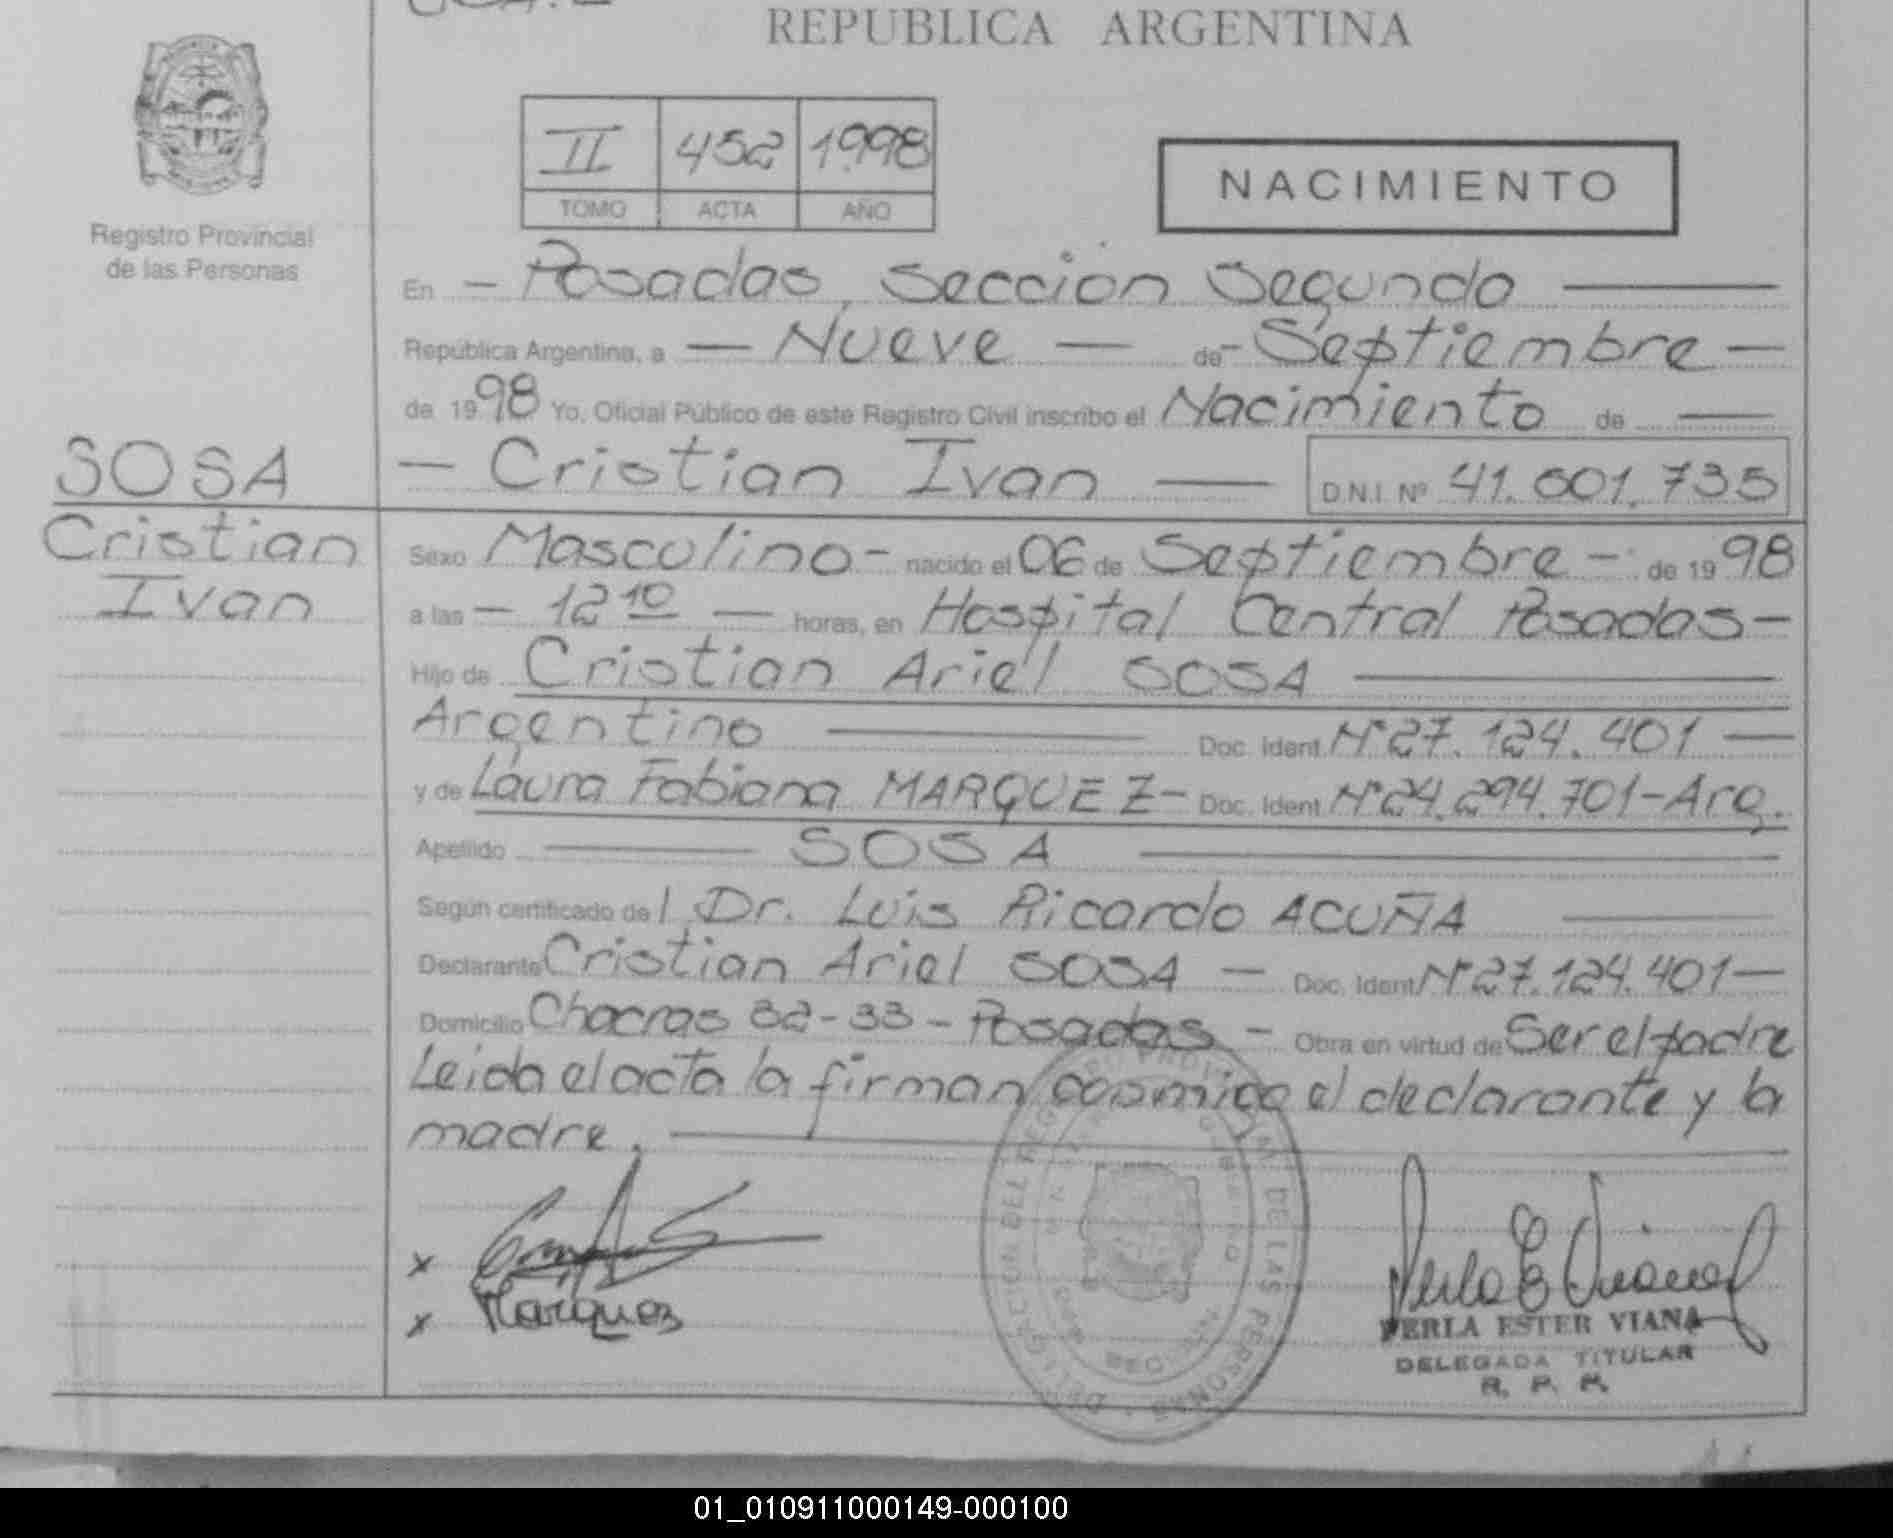 REPUBLICA ARGENTINA
II 452 1998
TOMO ACTA AÑO
NACIMIENTO
Registro Provincial
de las Personas
En — Posadas, Sección Segunda
República Argentina, a — Nueve — de - Septiembre —
de 1998 Yo, Oficial Público de este Registro Civil inscribo el Nacimiento de
— Cristian Ivan — D.N.I. Nº 41.601.735
SOSA
Cristian
Ivan
Sexo Masculino - nacido el 06 de Septiembre - de 1998
a las — 12 10 — horas, en Hospital Central Posadas -
Hijo de Cristian Ariel SOSA
Argentino Doc. Ident. Nº 27.124.401 —
y de Laura Fabiana MARQUEZ - Doc. Ident. Nº 24.294.701 - Arg.
Apellido SOSA
Según certificado del Dr. Luis Ricardo ACUÑA
Declarante Cristian Ariel SOSA — Doc. Ident. Nº 27.124.401 —
Domicilio Chacras 32-33 - Posadas - Obra en virtud de Ser el padre
Leida el acta la firman conmigo el declarante y la
madre.
x
x Marquez
DELEGACION DEL REGISTRO PROVINCIAL DE LAS PERSONAS
Perla E Viana
PERLA ESTER VIANA
DELEGADA TITULAR
R. P. P.
01_010911000149-000100